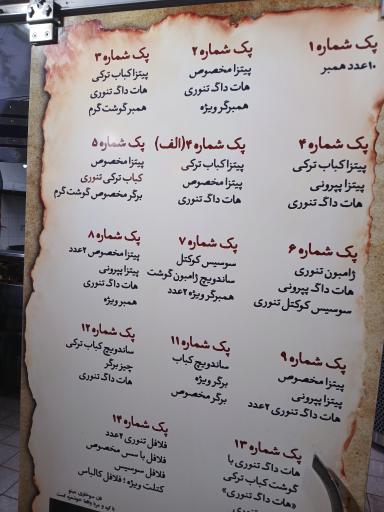 پک شماره ۱
۱۰عدد همبر
پک شماره ۲
پیتزا مخصوص
هات داگ تنوری
همبرگر ویژه
پک شماره ۳
پیتزا کباب ترکی
هات داگ تنوری
همبر گوشت گرم
پک شماره ۴
پیتزا کباب ترکی
پیتزا پپرونی
هات داگ تنوری
پک شماره ۴(الف)
پیتزا کباب ترکی
پیتزا مخصوص
هات داگ تنوری
پک شماره ۵
پیتزا مخصوص
کباب ترکی تنوری
برگر مخصوص گوشت گرم
پک شماره ۶
ژامبون تنوری
هات داگ پپرونی
سوسیس کوکتل تنوری
پک شماره ۷
سوسیس کوکتل
ساندویچ ژامبون گوشت
همبرگر ویژه ۲عدد
پک شماره ۸
پیتزا مخصوص ۲عدد
پیتزا پپرونی
هات داگ تنوری
همبر ویژه
پک شماره ۹
پیتزا مخصوص
پیتزا پپرونی
هات داگ تنوری ۲عدد
پک شماره ۱۱
ساندویچ کباب
برگر ویژه
برگر مخصوص
پک شماره ۱۲
ساندویچ کباب ترکی
چیز برگر
هات داگ تنوری
پک شماره ۱۳
هات داگ تنوری با
گوشت کباب ترکی
«هات داگ تنوری»
پک شماره ۱۴
فلافل تنوری ۲عدد
فلافل با سس مخصوص
فلافل سوسیس
کتلت ویژه ؛ فلافل کالباس